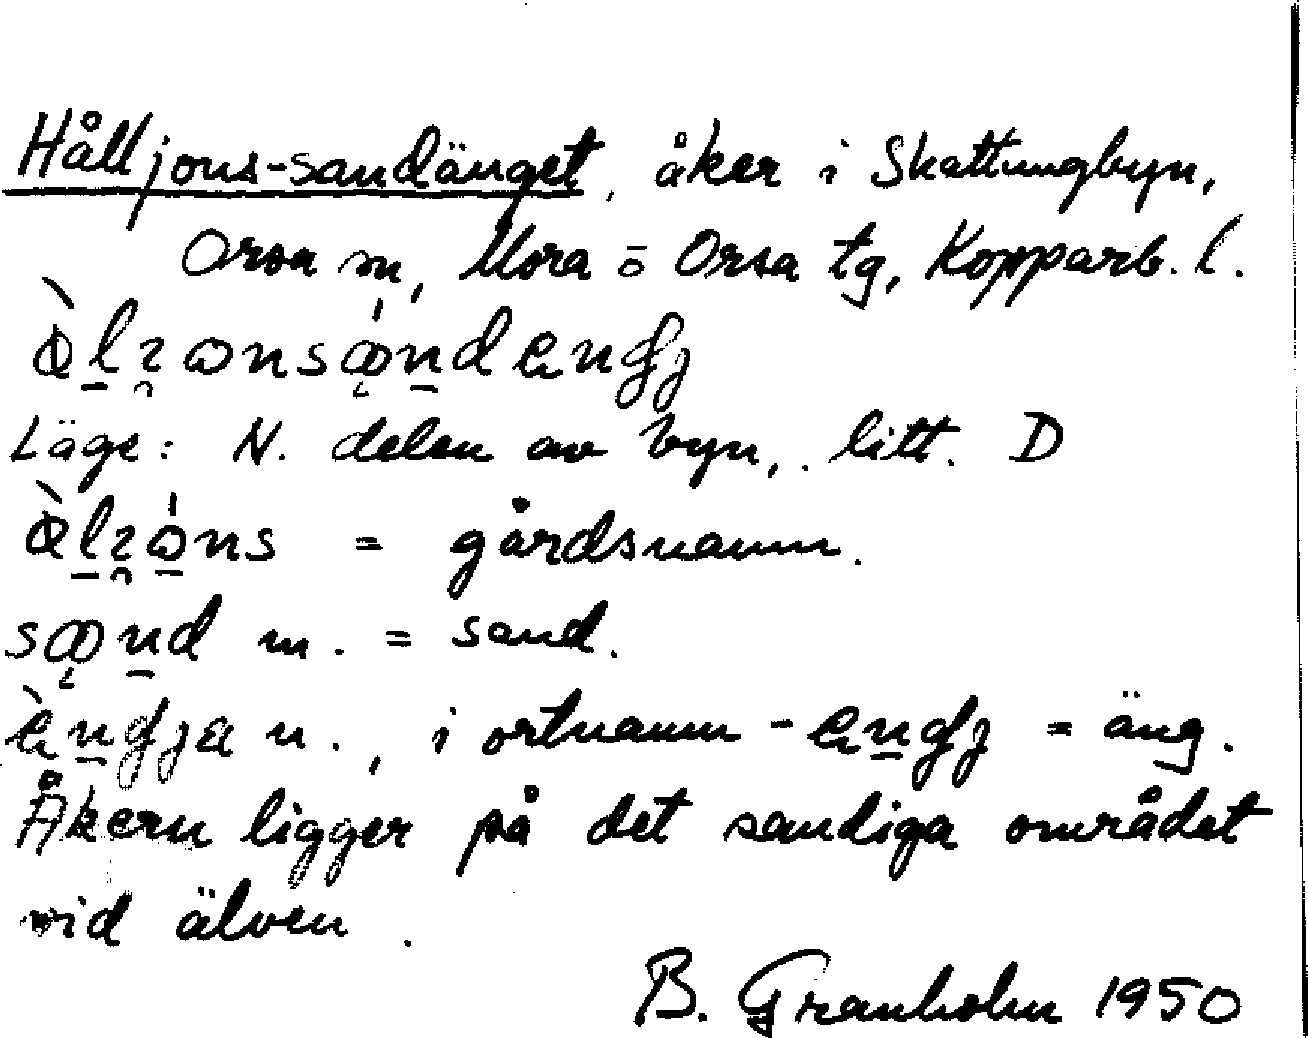 Hålljons-sandänget, åker i Skattungbyn,
Orsa sn, Mora o Orsa tg, Kopparb. l.
Läge: N. delen av byn, litt. D
= gårdsnamn.
m. = sand.
n., i ortnamn = äng.
Åkern ligger på det sandiga området
vid älven.
B. Granholm 1950